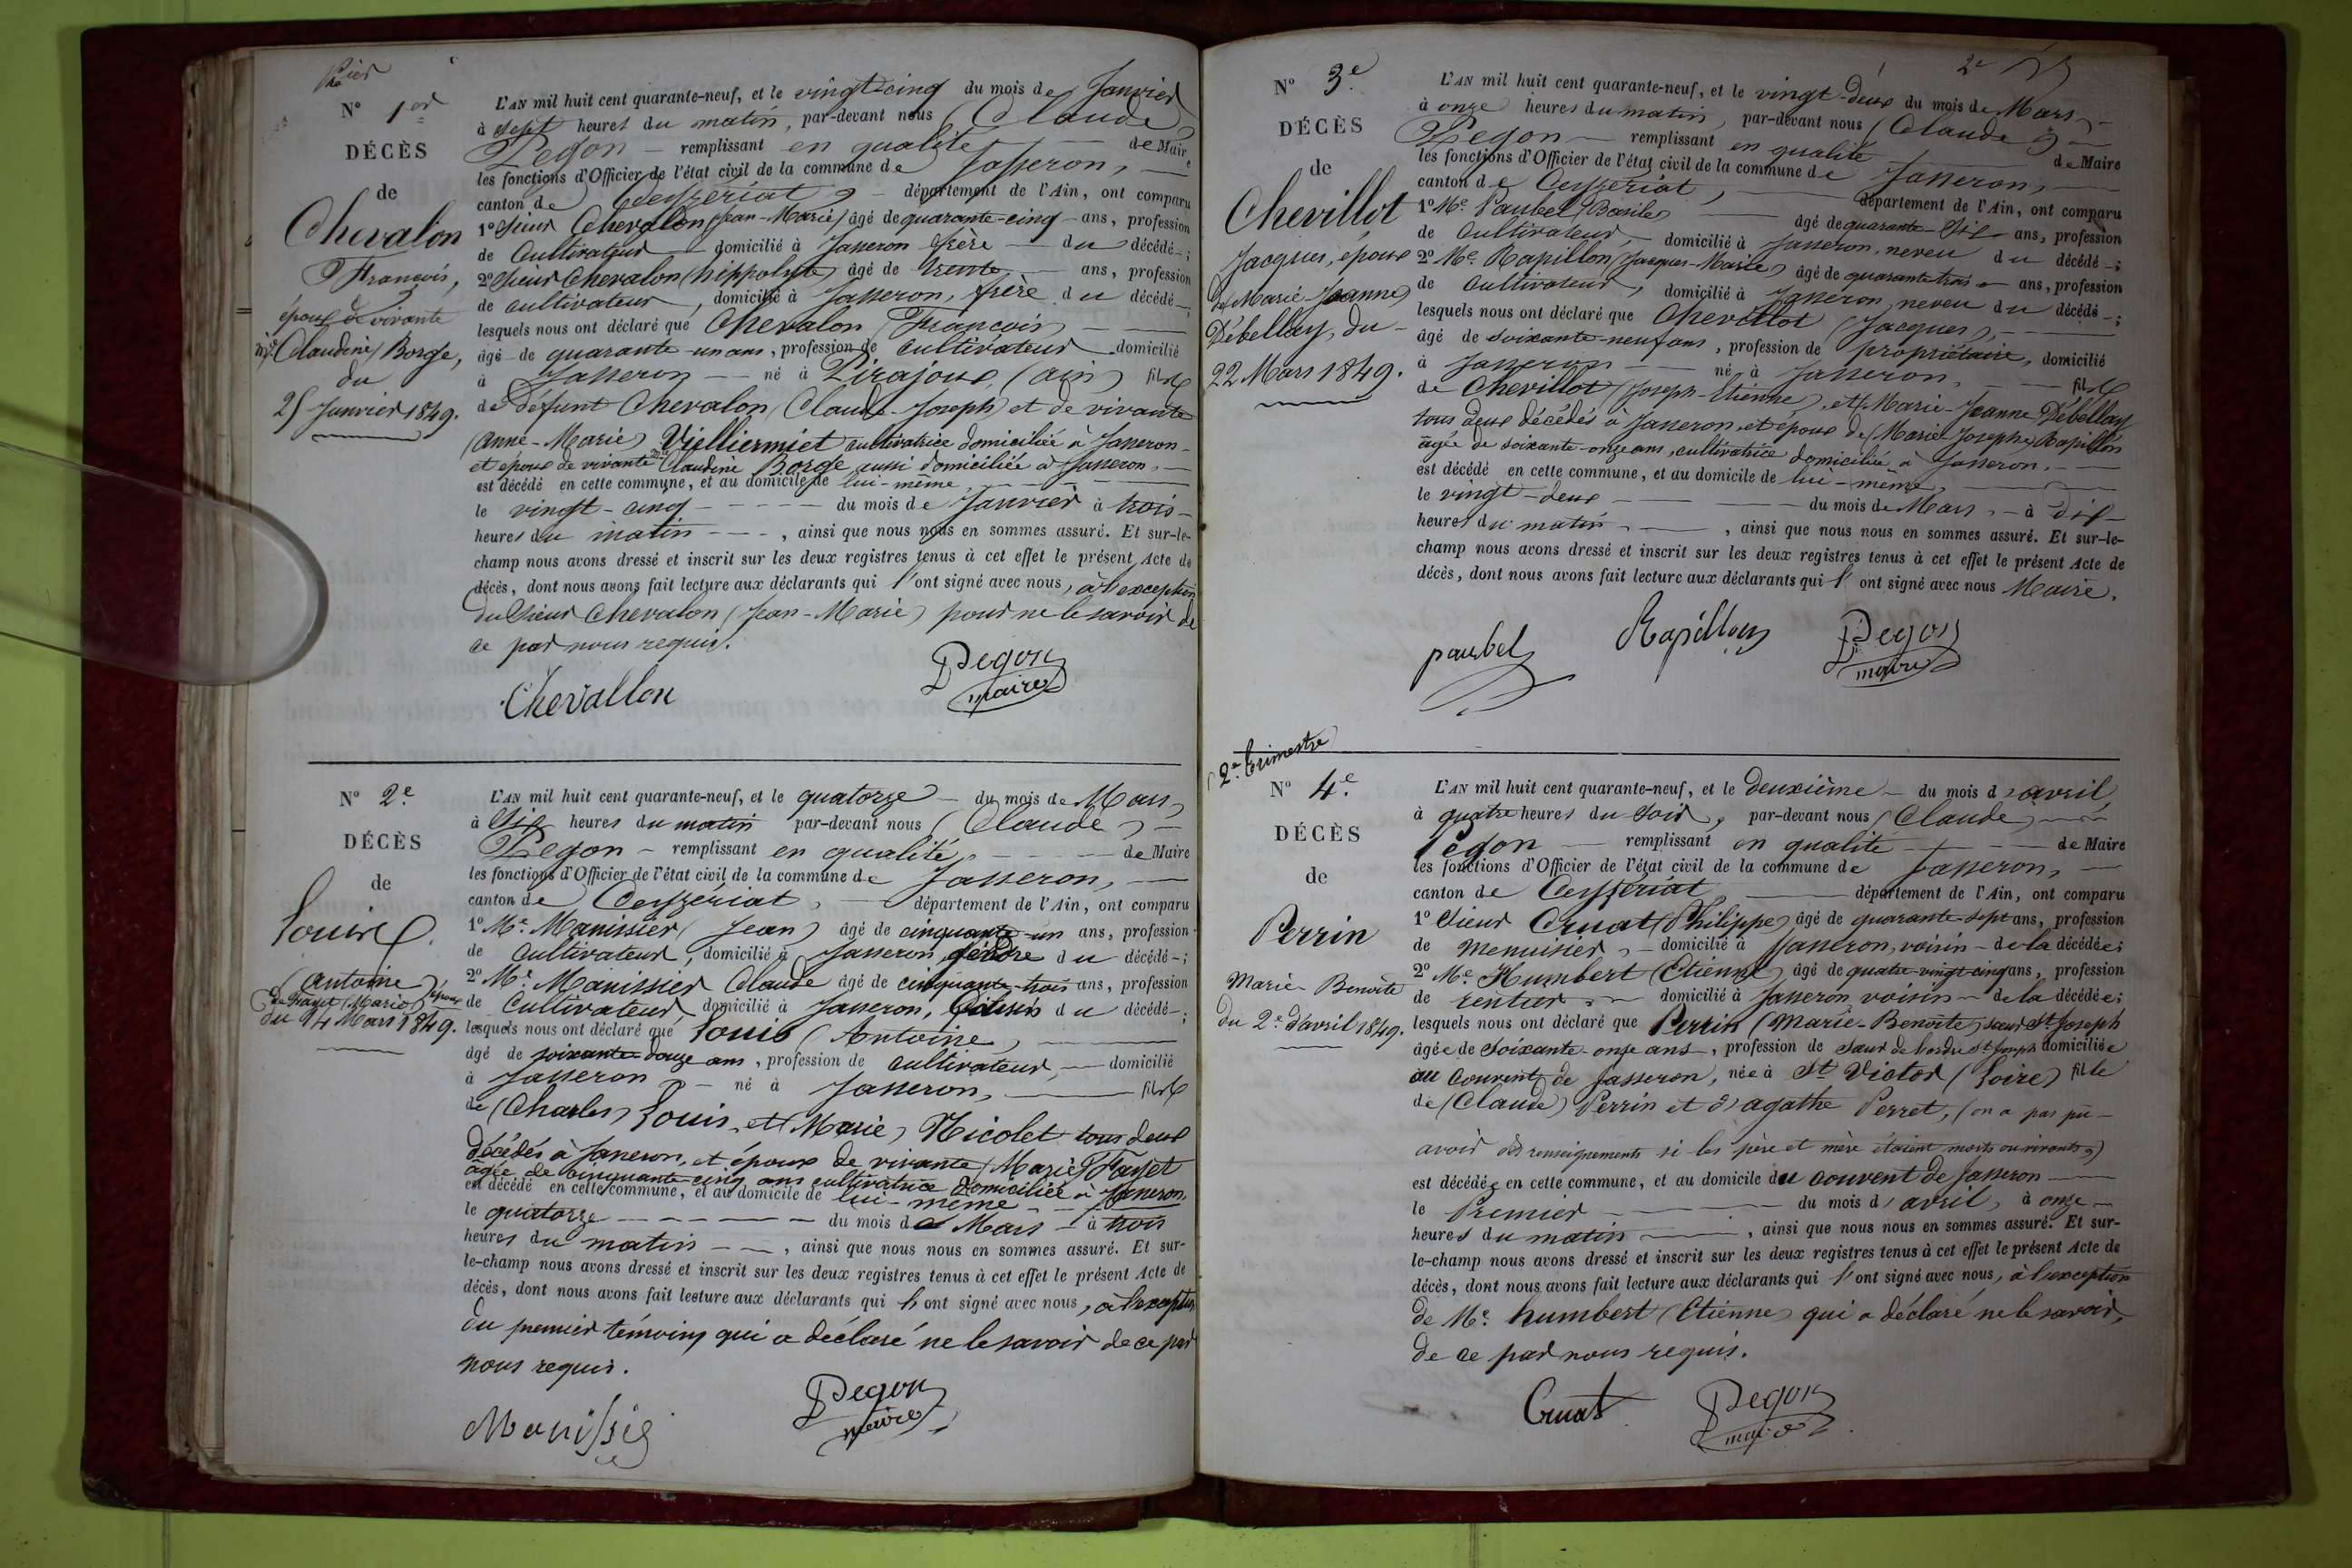 N° 1er
DÉCÈS
de
Chevalon
François,
époux de vivante
Claudine Borge,
du
25 Janvier 1849.
L'AN mil huit cent quarante-neuf, et le vingt cinq du mois de Janvier
à sept heures du matin, par-devant nous (Claude)
Pegon — remplissant en qualité — de Maire
les fonctions d'Officier de l'état civil de la commune de Jasseron,
canton de Ceyzériat, — département de l'Ain, ont comparu
1° Sieur Chevalon (Jean-Marie) âgé de quarante-cinq ans, profession
de Cultivateur domicilié à Jasseron frère du décédé ;
2° Sieur Chevalon (hippolyte) âgé de trente ans, profession
de cultivateur, domicilié à Jasseron, frère du décédé,
lesquels nous ont déclaré que Chevalon (François)
âgé de quarante-un ans, profession de Cultivateur domicilié
à Jasseron — né à Pirajoux, (ain) fils
de défunt Chevalon (Claude-Joseph) et de vivante
(Anne-Marie) Vielliermiet cultivatrice domiciliée à Jasseron
et époux de vivante Claudine Borge aussi domiciliée à Jasseron,
est décédé en cette commune, et au domicile de lui-même
le vingt-cinq du mois de Janvier à trois
heures du matin, ainsi que nous nous en sommes assuré. Et sur-le-
champ nous avons dressé et inscrit sur les deux registres tenus à cet effet le présent Acte de
décès, dont nous avons fait lecture aux déclarants qui l'ont signé avec nous, à l'exception
du Sieur Chevalon (Jean-Marie) pour ne le savoir de
ce par nous requis.
Chevallon Pegon
maire
N° 2e
DÉCÈS
de
Louis
(Antoine) époux
de Fayet (Marie)
du 14 Mars 1849.
L'AN mil huit cent quarante-neuf, et le quatorze du mois de Mars,
à six heures du matin par-devant nous (Claude)
Pegon — remplissant en qualité, — de Maire
les fonctions d'Officier de l'état civil de la commune de Jasseron,
canton de Ceyzériat, département de l'Ain, ont comparu
1° Mr. Manissier (Jean) âgé de cinquante-un ans, profession
de cultivateur, domicilié à Jasseron, gendre du décédé ;
2° Mr. Manissier Claude âgé de cinquante-trois ans, profession
de Cultivateur domicilié à Jasseron, voisin du décédé ;
lesquels nous ont déclaré que Louis (Antoine)
âgé de soixante-douze ans, profession de cultivateur, domicilié
à Jasseron — né à Jasseron, fils
de (Charles) Louis, et (Marie) Nicolet tous deux
décédés à Jasseron, et époux de vivante (Marie) Fayet
âgée de cinquante-cinq ans cultivatrice domiciliée à Jasseron,
est décédé en cette commune, et au domicile de lui-même
le quatorze du mois de Mars à trois
heures du matin, ainsi que nous nous en sommes assuré. Et sur-
le-champ nous avons dressé et inscrit sur les deux registres tenus à cet effet le présent Acte de
décès, dont nous avons fait lecture aux déclarants qui l'ont signé avec nous, à l'exception
du premier témoins qui a déclaré ne le savoir de ce par
nous requis.
Manissié Pegon
maire
N° 3e
DÉCÈS
de
Chevillot
Jacques, époux
de Marie-Jeanne
Débellay, du
22 Mars 1849.
2e
L'AN mil huit cent quarante-neuf, et le vingt-deux du mois de Mars,
à onze heures du matin, par-devant nous (Claude)
Pegon — remplissant en qualité de Maire
les fonctions d'Officier de l'état civil de la commune de Jasseron,
canton de Ceyzériat, département de l'Ain, ont comparu
1° Mr. Paubel (Basile) âgé de quarante-six ans, profession
de Cultivateur, domicilié à Jasseron, neveu du décédé ;
2° Mr. Rapillon (Jacques-Marie) âgé de quarante trois ans, profession
de Cultivateur, domicilié à Jasseron, neveu du décédé ;
lesquels nous ont déclaré que Chevillot (Jacques),
âgé de soixante-neuf ans, profession de propriétaire, domicilié
à Jasseron — né à Jasseron, fils
de Chevillot (Joseph-Etienne), et Marie-Jeanne Débellay
tous deux décédés à Jasseron, et époux de (Marie Josephe) Rapillon
âgée de soixante-onze ans, cultivatrice domiciliée à Jasseron,
est décédé en cette commune, et au domicile de lui-même,
le vingt-deux du mois de Mars, à dix
heures du matin, ainsi que nous nous en sommes assuré. Et sur-le-
champ nous avons dressé et inscrit sur les deux registres tenus à cet effet le présent Acte de
décès, dont nous avons fait lecture aux déclarants qui l'ont signé avec nous Maire.
paubel Rapillon Pegon
maire
2e trimestre
N° 4e
DÉCÈS
de
Perrin
Marie-Benoite
du 2e d'avril 1849.
L'AN mil huit cent quarante-neuf, et le deuxième du mois d'avril,
à quatre heures du soir, par-devant nous (Claude)
Pegon — remplissant en qualité de Maire
les fonctions d'Officier de l'état civil de la commune de Jasseron,
canton de Ceyzériat, département de l'Ain, ont comparu
1° Sieur Cruat (Philippe) âgé de quarante-sept ans, profession
de menuisier, domicilié à Jasseron, voisin de la décédée ;
2° Mr. Humbert (Etienne) âgé de quatre-vingt-cinq ans, profession
de rentier, domicilié à Jasseron voisin de la décédée ;
lesquels nous ont déclaré que Perrin (Marie-Benoîte) sœur St Joseph
âgée de soixante-onze ans, profession de sœur de l'ordre St Joseph domiciliée
au Couvent de Jasseron, née à St Victor (Loire) fille
de (Claude) Perrin et d'agathe Perret, (on a pas pu
avoir des renseignements si les père et mère étaient morts ou vivants,)
est décédée en cette commune, et au domicile du couvent de Jasseron
le Premier du mois d'avril, à onze
heures du matin, ainsi que nous nous en sommes assuré. Et sur-
le-champ nous avons dressé et inscrit sur les deux registres tenus à cet effet le présent Acte de
décès, dont nous avons fait lecture aux déclarants qui l'ont signé avec nous, à l'exception
de Mr. humbert (Etienne) qui a déclaré ne le savoir,
de ce par nous requis.
Cruat Pegon
maire